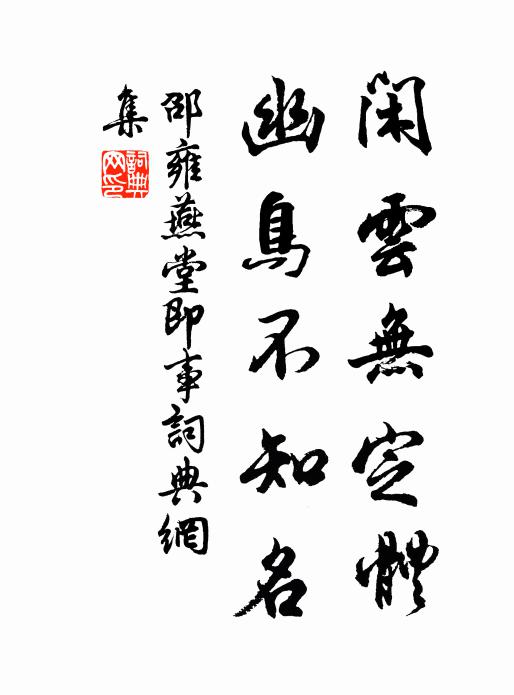 閑雲無定體
幽鳥不知名
邵雍燕堂即事詞典網
集
詞典
网印